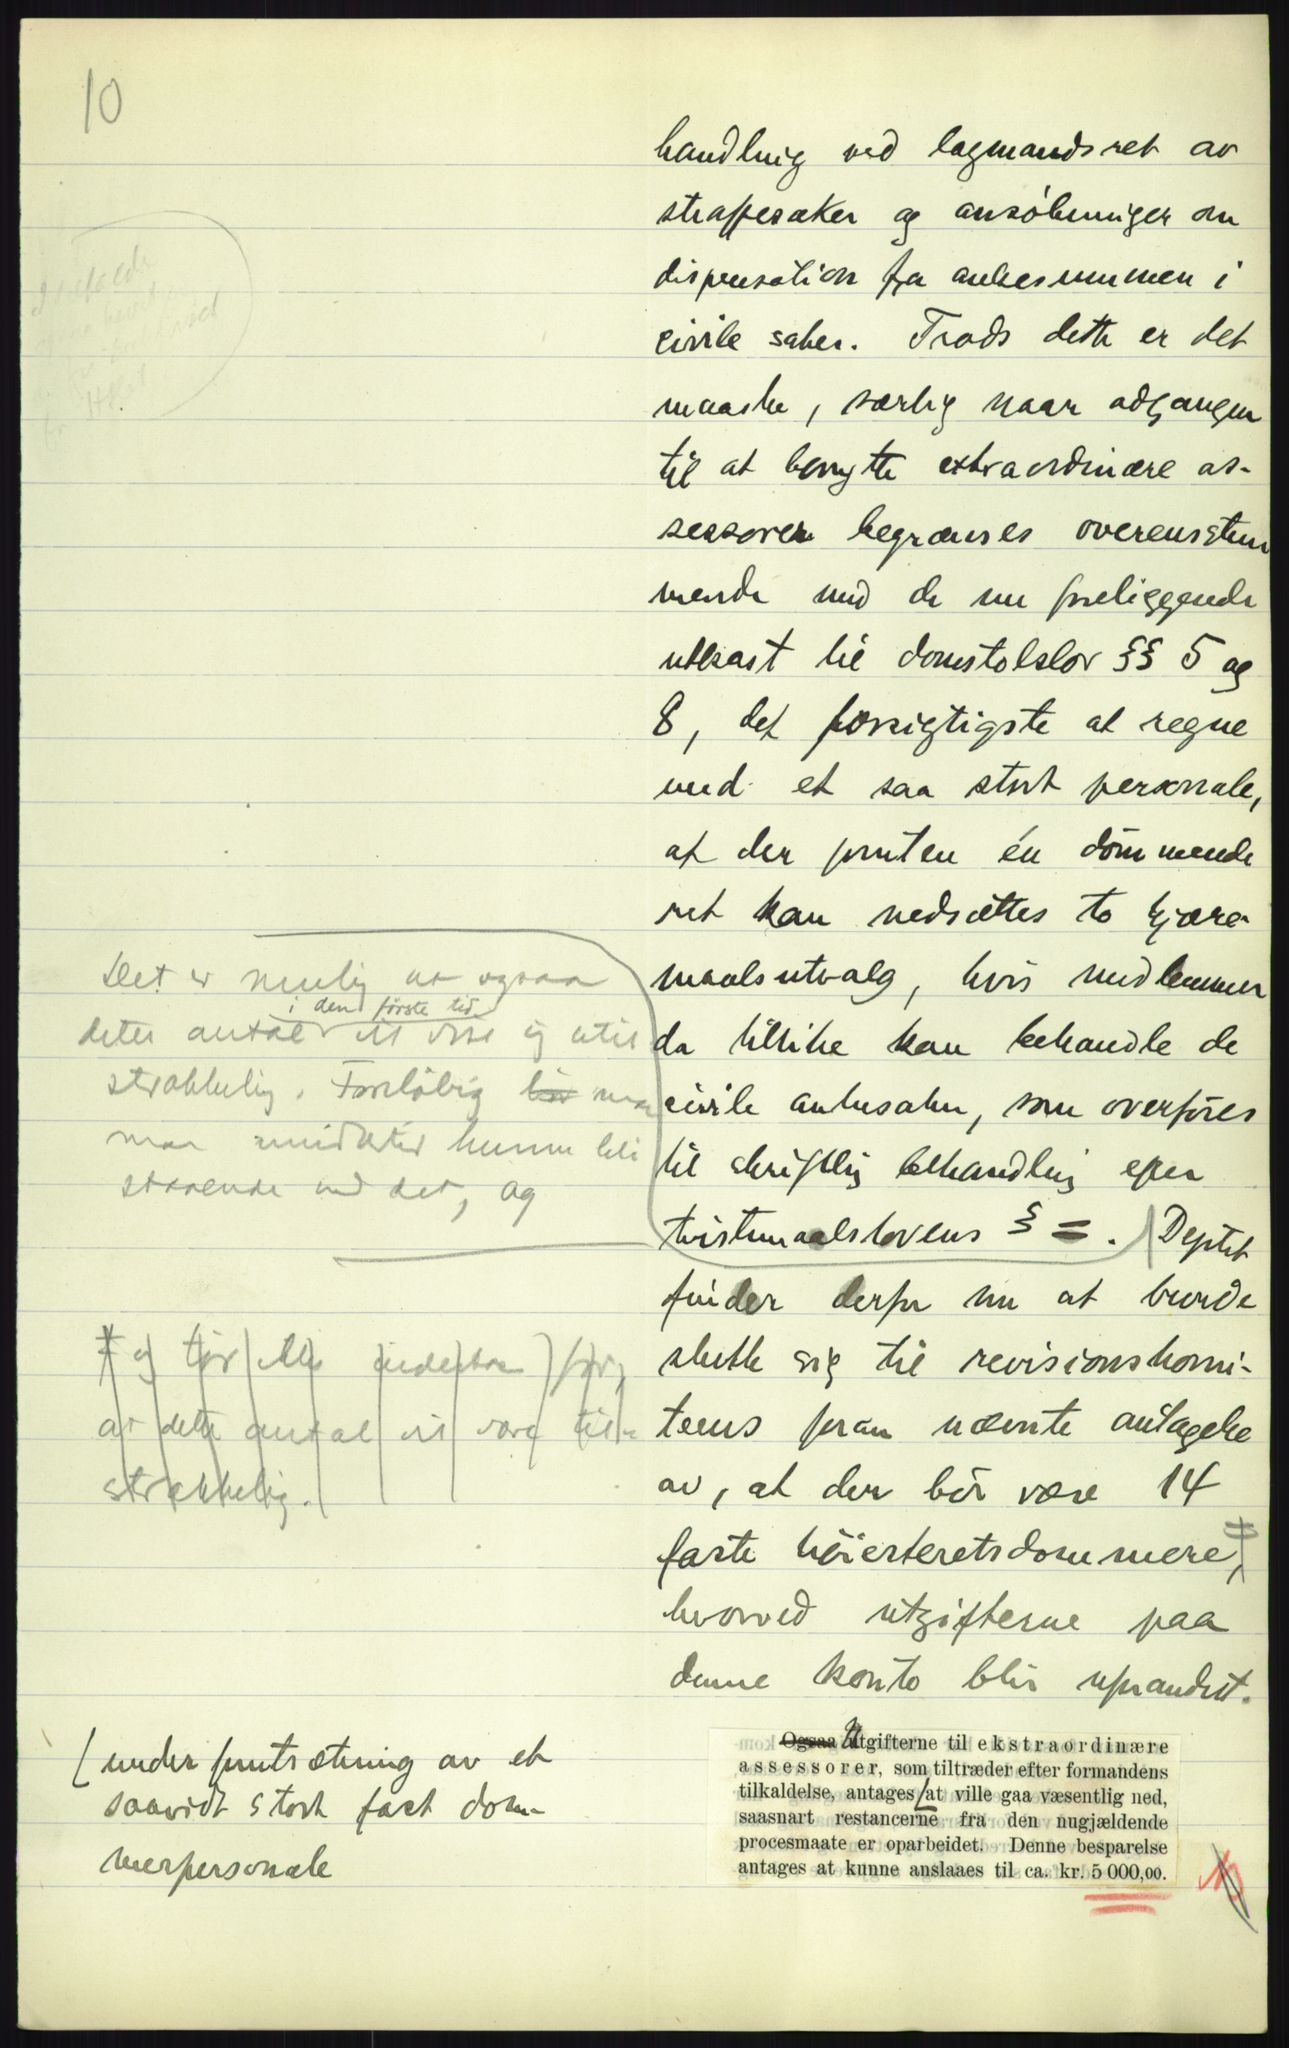 10
handling ved lagmandsret av
straffesaker og ansökninger om
dispensation fra ankesummen i
civile saker. Trods dette er det
maaske, særlig naar adgangen
til at benytte extraordinære as-
sessorer begrænses overensstem
mende med de nu foreliggende
utkast til domstolslov §§ 5 og
8, det forsigtigste at regne
med et saa stort personale,
at der foruten én dömmende
ret kan nedsættes to kjære-
maalsutvalg, hvis medlemmer
da tillike kan behandle de
civile ankesaker, som overföres
til skriftlig behandling efter
tvistemaalslovens § = . Deptet
finder derfor nu at burde
slutte sig til revisionskomi-
teens foran nævnte antagelse
av, at der bör være 14
faste höiesteretsdommere,
hvorved utgifterne paa
denne konto blir uforandret.
Det er mulig at ogsaa
dette antal i den förste tid vil vise sig util
strækkelig. Foreløbig bör man
man imidlertid kunne bli
staaende ved det, og
og tör
at dette antal vil være til-
strækkelig.
[under forutsætning av et
saavidt stort fast dom-
merpersonale
Ogsaa Utgifterne til ekstraordinære
assessorer, som tiltræder efter formandens
tilkaldelse, antages [at ville gaa væsentlig ned,
saasnart restancerne fra den nugjældende
procesmaate er oparbeidet. Denne besparelse
antages at kunne anslaaes til ca. kr. 5 000,00.